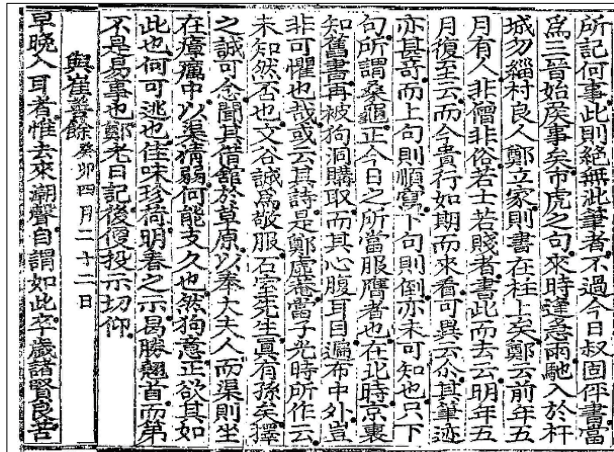 所記何事此則絶無此筆者不過今日叔固伴書當
爲三晉始侯事矣市虎之句來時逢急雨馳入於杆
城勿緇村良人鄭立家則書在柱上矣鄭云前年五
月有人非僧非俗若士若賤者書此而去云明年五
月復至云而今貴行如期而來看可異云尒其筆迹
亦甚奇而上句則順寫下句則倒亦未可知也只下
句所謂桑龜正今日之所當服膺者也在北時京裏
知舊書再被狗洞購取而其心腹耳目遍布中外豈
非可懼也哉或云其詩是鄭虛菴當子光時所作云
未知然否也文谷誠爲敬服石室先生眞有孫矣擇
之誠可念聞其借館於草原以奉大夫人而渠則坐
在瘴癘中以渠猜弱何能支久也然狗意正欲其如
此也何可逃也佳味珍荷明春之示曷勝翹首而第
不是易事也鄭老日記後便投示切仰
與崔善餘癸卯四月二十二日
早晚入耳者惟去來潮聲自謂如此卒歲諸賢良苦